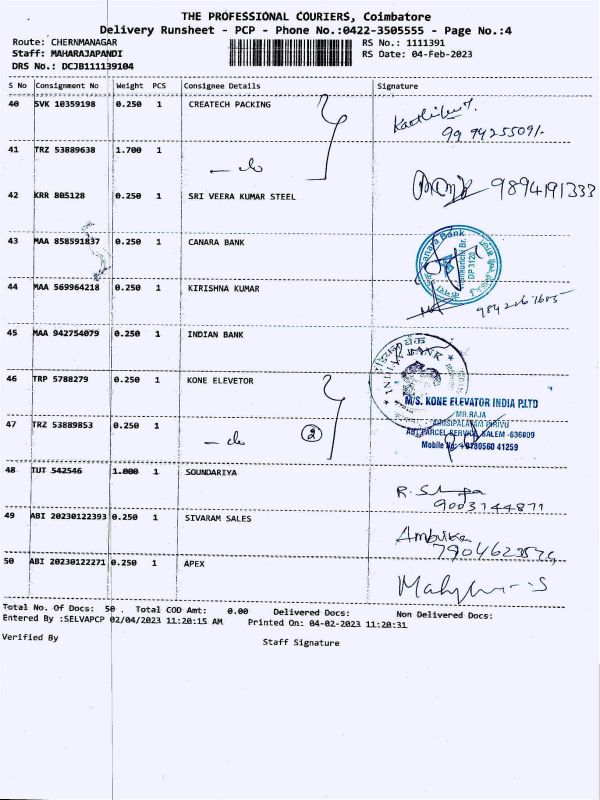 THE PROFESSIONAL COURIERS, Coimbatore
Delivery Runsheet - PCP - Phone No.:0422-3505555 - Page No.:4
Route: CHERNMANAGAR RS No.: 1111391
Staff: MAHARAJAPANDI RS Date: 04-Feb-2023
DRS No.: DCJB111139104
S No Consignment No Weight PCS Consignee Details Signature
40 SVK 10359198 0.250 1 CREATECH PACKING
41 TRZ 53889638 1.700 1
42 KRR 805128 0.250 1 SRI VEERA KUMAR STEEL 9894191333
43 MAA 858591837 0.250 1 CANARA BANK
Canara Bank
DP 3128
44 MAA 569964218 0.250 1 KIRISHNA KUMAR
45 MAA 942754079 0.250 1 INDIAN BANK
INDIAN BANK
46 TRP 5788279 0.250 1 KONE ELEVETOR
M/S. KONE ELEVATOR INDIA P.LTD
MR.RAJA
47 TRZ 53889853 0.250 1
2
ABT PARCEL SERVICE, SALEM -636009
48 TUT 542546 1.000 1 SOUNDARIYA
9003144871
49 ABI 20230122393 0.250 1 SIVARAM SALES
Ambika
50 ABI 20230122271 0.250 1 APEX
Total No. Of Docs: 50 . Total COD Amt: 0.00 Delivered Docs: Non Delivered Docs:
Entered By :SELVAPCP 02/04/2023 11:20:15 AM Printed On: 04-02-2023 11:20:31
Verified By Staff Signature